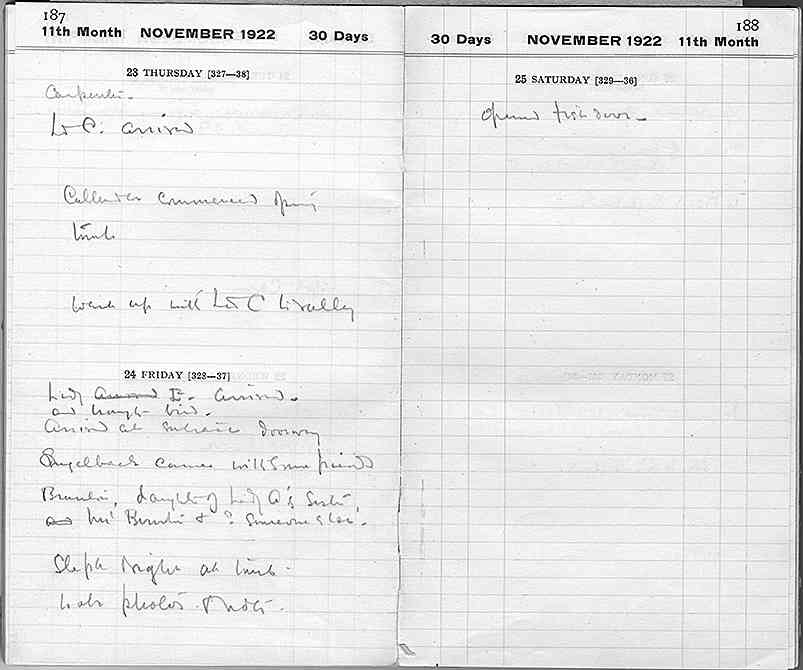 187
11th Month NOVEMBER 1922 30 Days
23 THURSDAY [327—38]
Carpenter.
Ld C. arrived
Callender commenced opening
tomb
Went up with Ld C to valley
24 FRIDAY [323—37]
Lady E. arrived.
and brought bird.
Arrived at entrance doorway
Engelbach came with some friends
daughter of Lady A's sister,
& ? someone else.
Slept night at tomb.
photos & notes.
188
30 Days NOVEMBER 1922 11th Month
25 SATURDAY [329—36]
Opened first door—